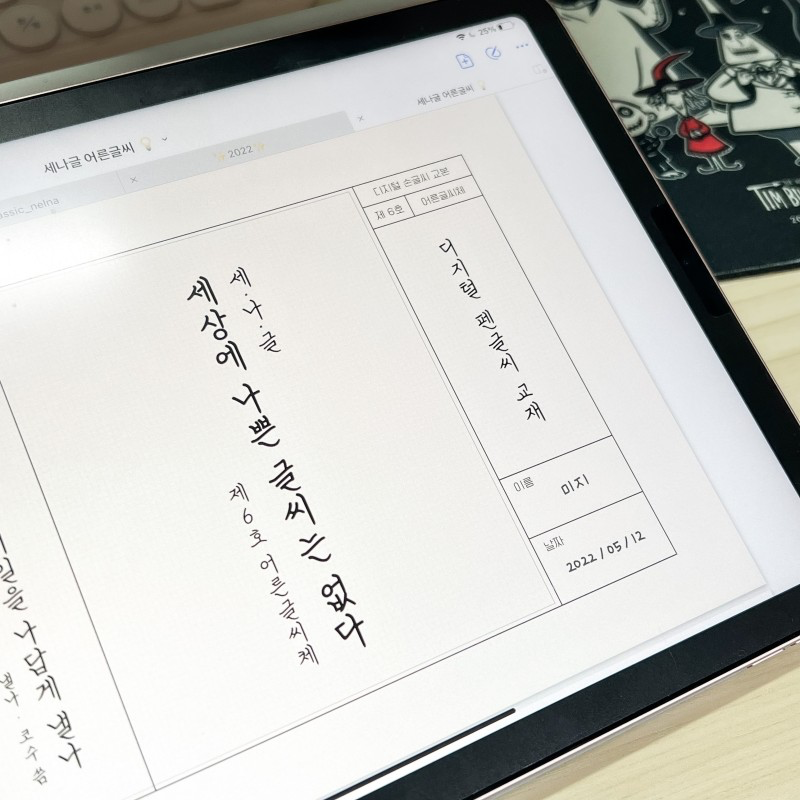 25%
세나글 어른글씨
세나글 어른글씨
2022
ssic_nelna
디지털 손글씨 교본
제 6호
어른글씨체
디지털 펜글씨 교재
이름
미지
날짜
2022 / 05 / 12
세·나·글
세상에 나쁜 글씨는 없다
제 6호 어른글씨체
일을 나답게 낼나
낼나·코수씀
TIM